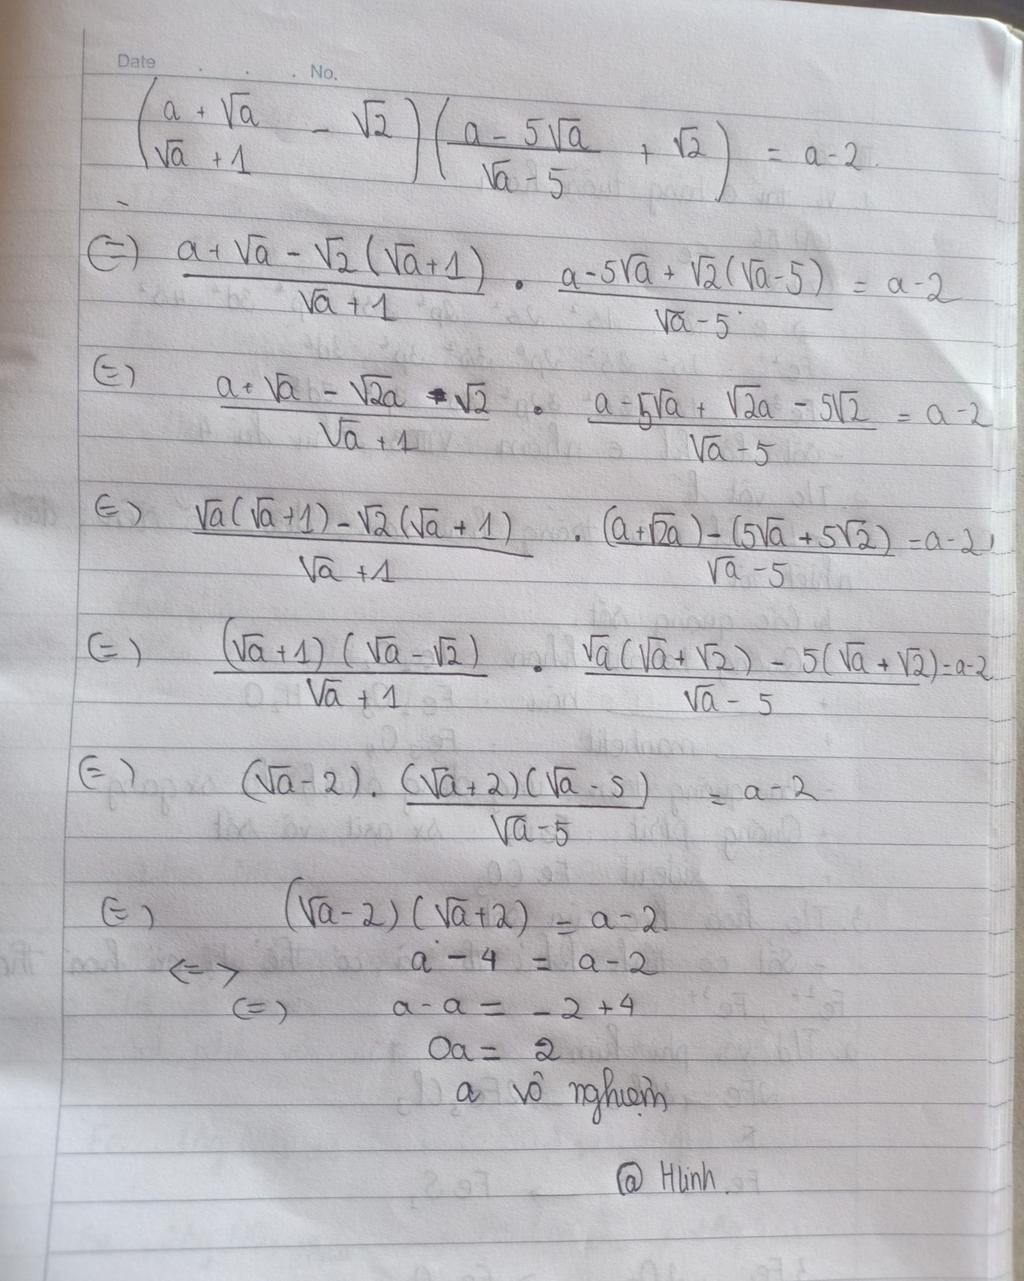 Date . . . No.
(a + √a / √a + 1 - √2)(a - 5√a / √a - 5 + √2) = a - 2
(=) a + √a - √2(√a + 1) / √a + 1 . a - 5√a + √2(√a - 5) / √a - 5 = a - 2
(=) a + √a - √2a - √2 / √a + 1 . a - 5√a + √2a - 5√2 / √a - 5 = a - 2
(=) √a(√a + 1) - √2(√a + 1) / √a + 1 . (a + √2a) - (5√a + 5√2) / √a - 5 = a - 2
(=) (√a + 1)(√a - √2) / √a + 1 . √a(√a + √2) - 5(√a + √2) / √a - 5 = a - 2
(=) (√a - 2) . (√a + 2)(√a - 5) / √a - 5 = a - 2
(=) (√a - 2)(√a + 2) = a - 2
<=> a - 4 = a - 2
(=) a - a = - 2 + 4
0a = 2
a vô nghiệm
@ HLinh